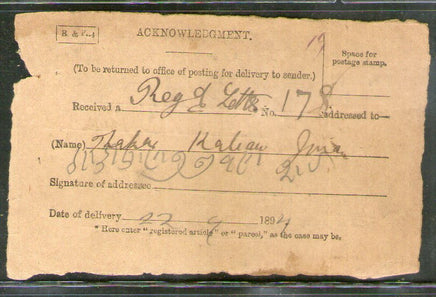 ACKNOWLEDGMENT.
19
Space for
postage stamp.
(To be returned to office of posting for delivery to sender.)
Received a Regd Letter No. 178 addressed to—
(Name) Thakar Kalian
Signature of addressee
Date of delivery 22 9 1894
* Here enter "registered article" or "parcel," as the case may be.